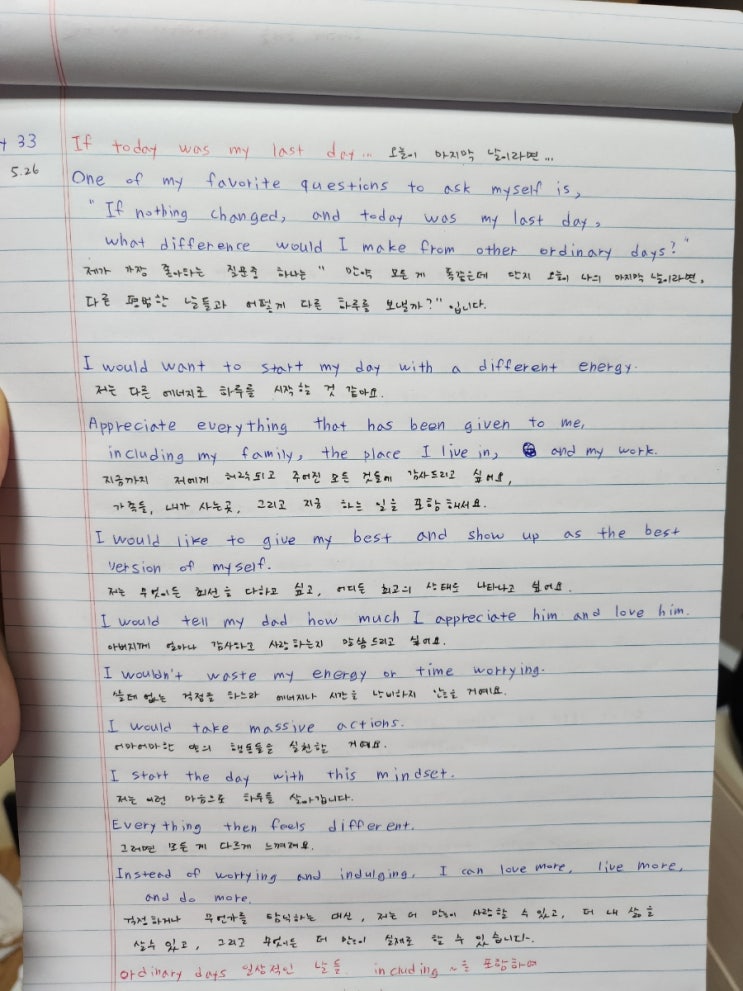 33
If today was my last day... 오늘이 마지막 날이라면...
5.26
One of my favorite questions to ask myself is,
"If nothing changed, and today was my last day,
what difference would I make from other ordinary days?"
제가 가장 좋아하는 질문중 하나는 "만약 모든 게 똑같은데 단지 오늘이 나의 마지막 날이라면,
다른 평범한 날들과 어떻게 다른 하루를 보낼까?" 입니다.
I would want to start my day with a different energy.
저는 다른 에너지로 하루를 시작할 것 같아요.
Appreciate everything that has been given to me,
including my family, the place I live in, and my work.
지금까지 저에게 허락되고 주어진 모든 것들에 감사드리고 싶어요,
가족들, 내가 사는곳, 그리고 지금 하는 일을 포함해서요.
I would like to give my best and show up as the best
version of myself.
저는 무엇이든 최선을 다하고 싶고, 어디든 최고의 상태로 나타나고 싶어요.
I would tell my dad how much I appreciate him and love him.
아버지께 얼마나 감사하고 사랑하는지 말씀드리고 싶어요.
I wouldn't waste my energy or time worrying.
쓸데없는 걱정을 하느라 에너지나 시간을 낭비하지 않을 거예요.
I would take massive actions.
어마어마한 양의 행동들을 실천할 거예요.
I start the day with this mindset.
저는 이런 마음으로 하루를 살아갑니다.
Everything then feels different.
그러면 모든 게 다르게 느껴져요.
Instead of worrying and indulging, I can love more, live more,
and do more.
걱정하거나 무언가를 탐닉하는 대신, 저는 더 많이 사랑할 수 있고, 더 내 삶을
살수 있고, 그리고 무엇이든 더 많이 실제로 할 수 있습니다.
ordinary days 일상적인 날들. including ~을 포함하여